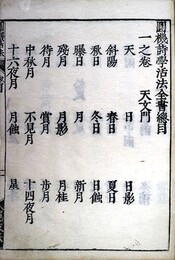 圓機詩學活法全書總目
一之卷 天文門
天 日 日影
斜陽 春日 夏日
秋日 冬日 日蝕
月 新月
殘月 月影 月桂
待月 賞月 步月
中秋月 不見月 十四夜月
十六夜月 月蝕 星